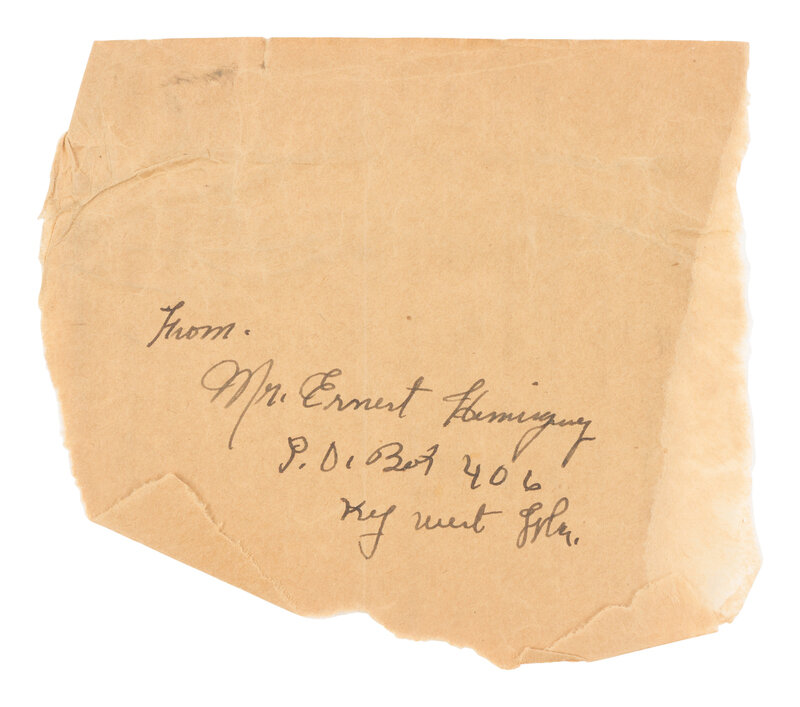 From.
Mr. Ernest Heminguey
P.O. Box 406
Key West Fla.